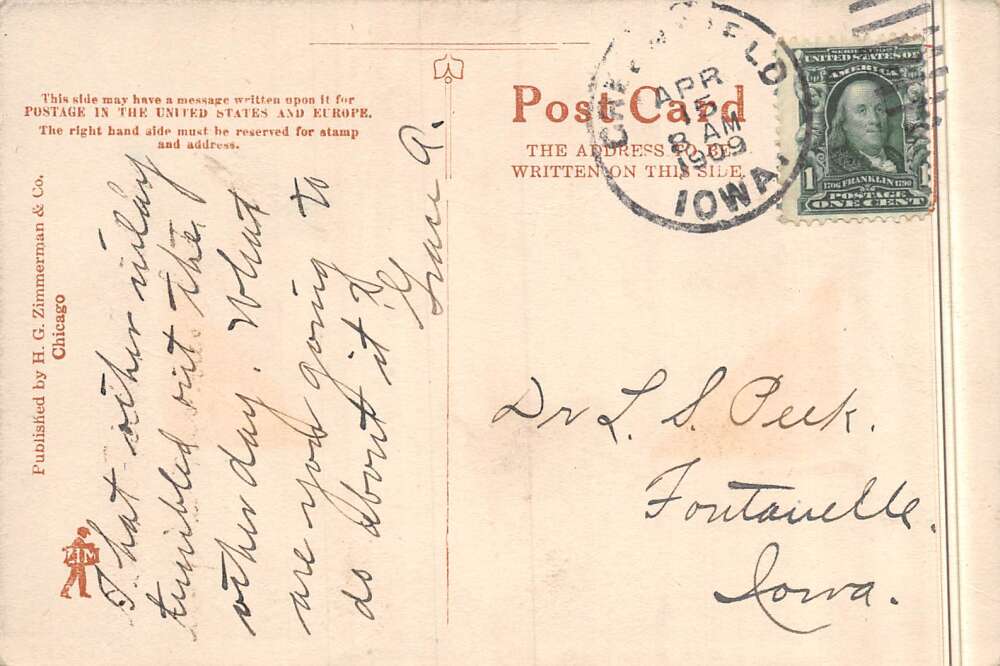 This side may have a message written upon it for
POSTAGE IN THE UNITED STATES AND EUROPE.
The right hand side must be reserved for stamp
and address.
Post Card
THE ADDRESS TO BE
WRITTEN ON THIS SIDE.
APR
15
8 AM
1909
IOWA.
SERIES 1902
UNITED STATES OF
AMERICA
1706 FRANKLIN 1790
POSTAGE
1 1
ONE CENT
Published by H. G. Zimmerman & Co.
Chicago
ZIM
That other inlay
tumbled out the
other day. What
are you going to
do about it?
Grace A.
Dr L. S. Peek.
Fontanelle.
Iowa.